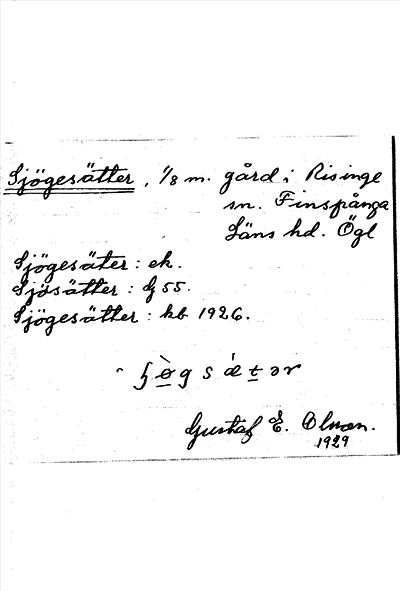 Sjögesätter, 1/8 m. gård i Risinge
sn. Finspånga
Läns hd. Ögl
Sjögesäter: ek.
Sjösätter: G 55.
Sjögesätter: kb 1926.
Gustaf E. Olman.
1929